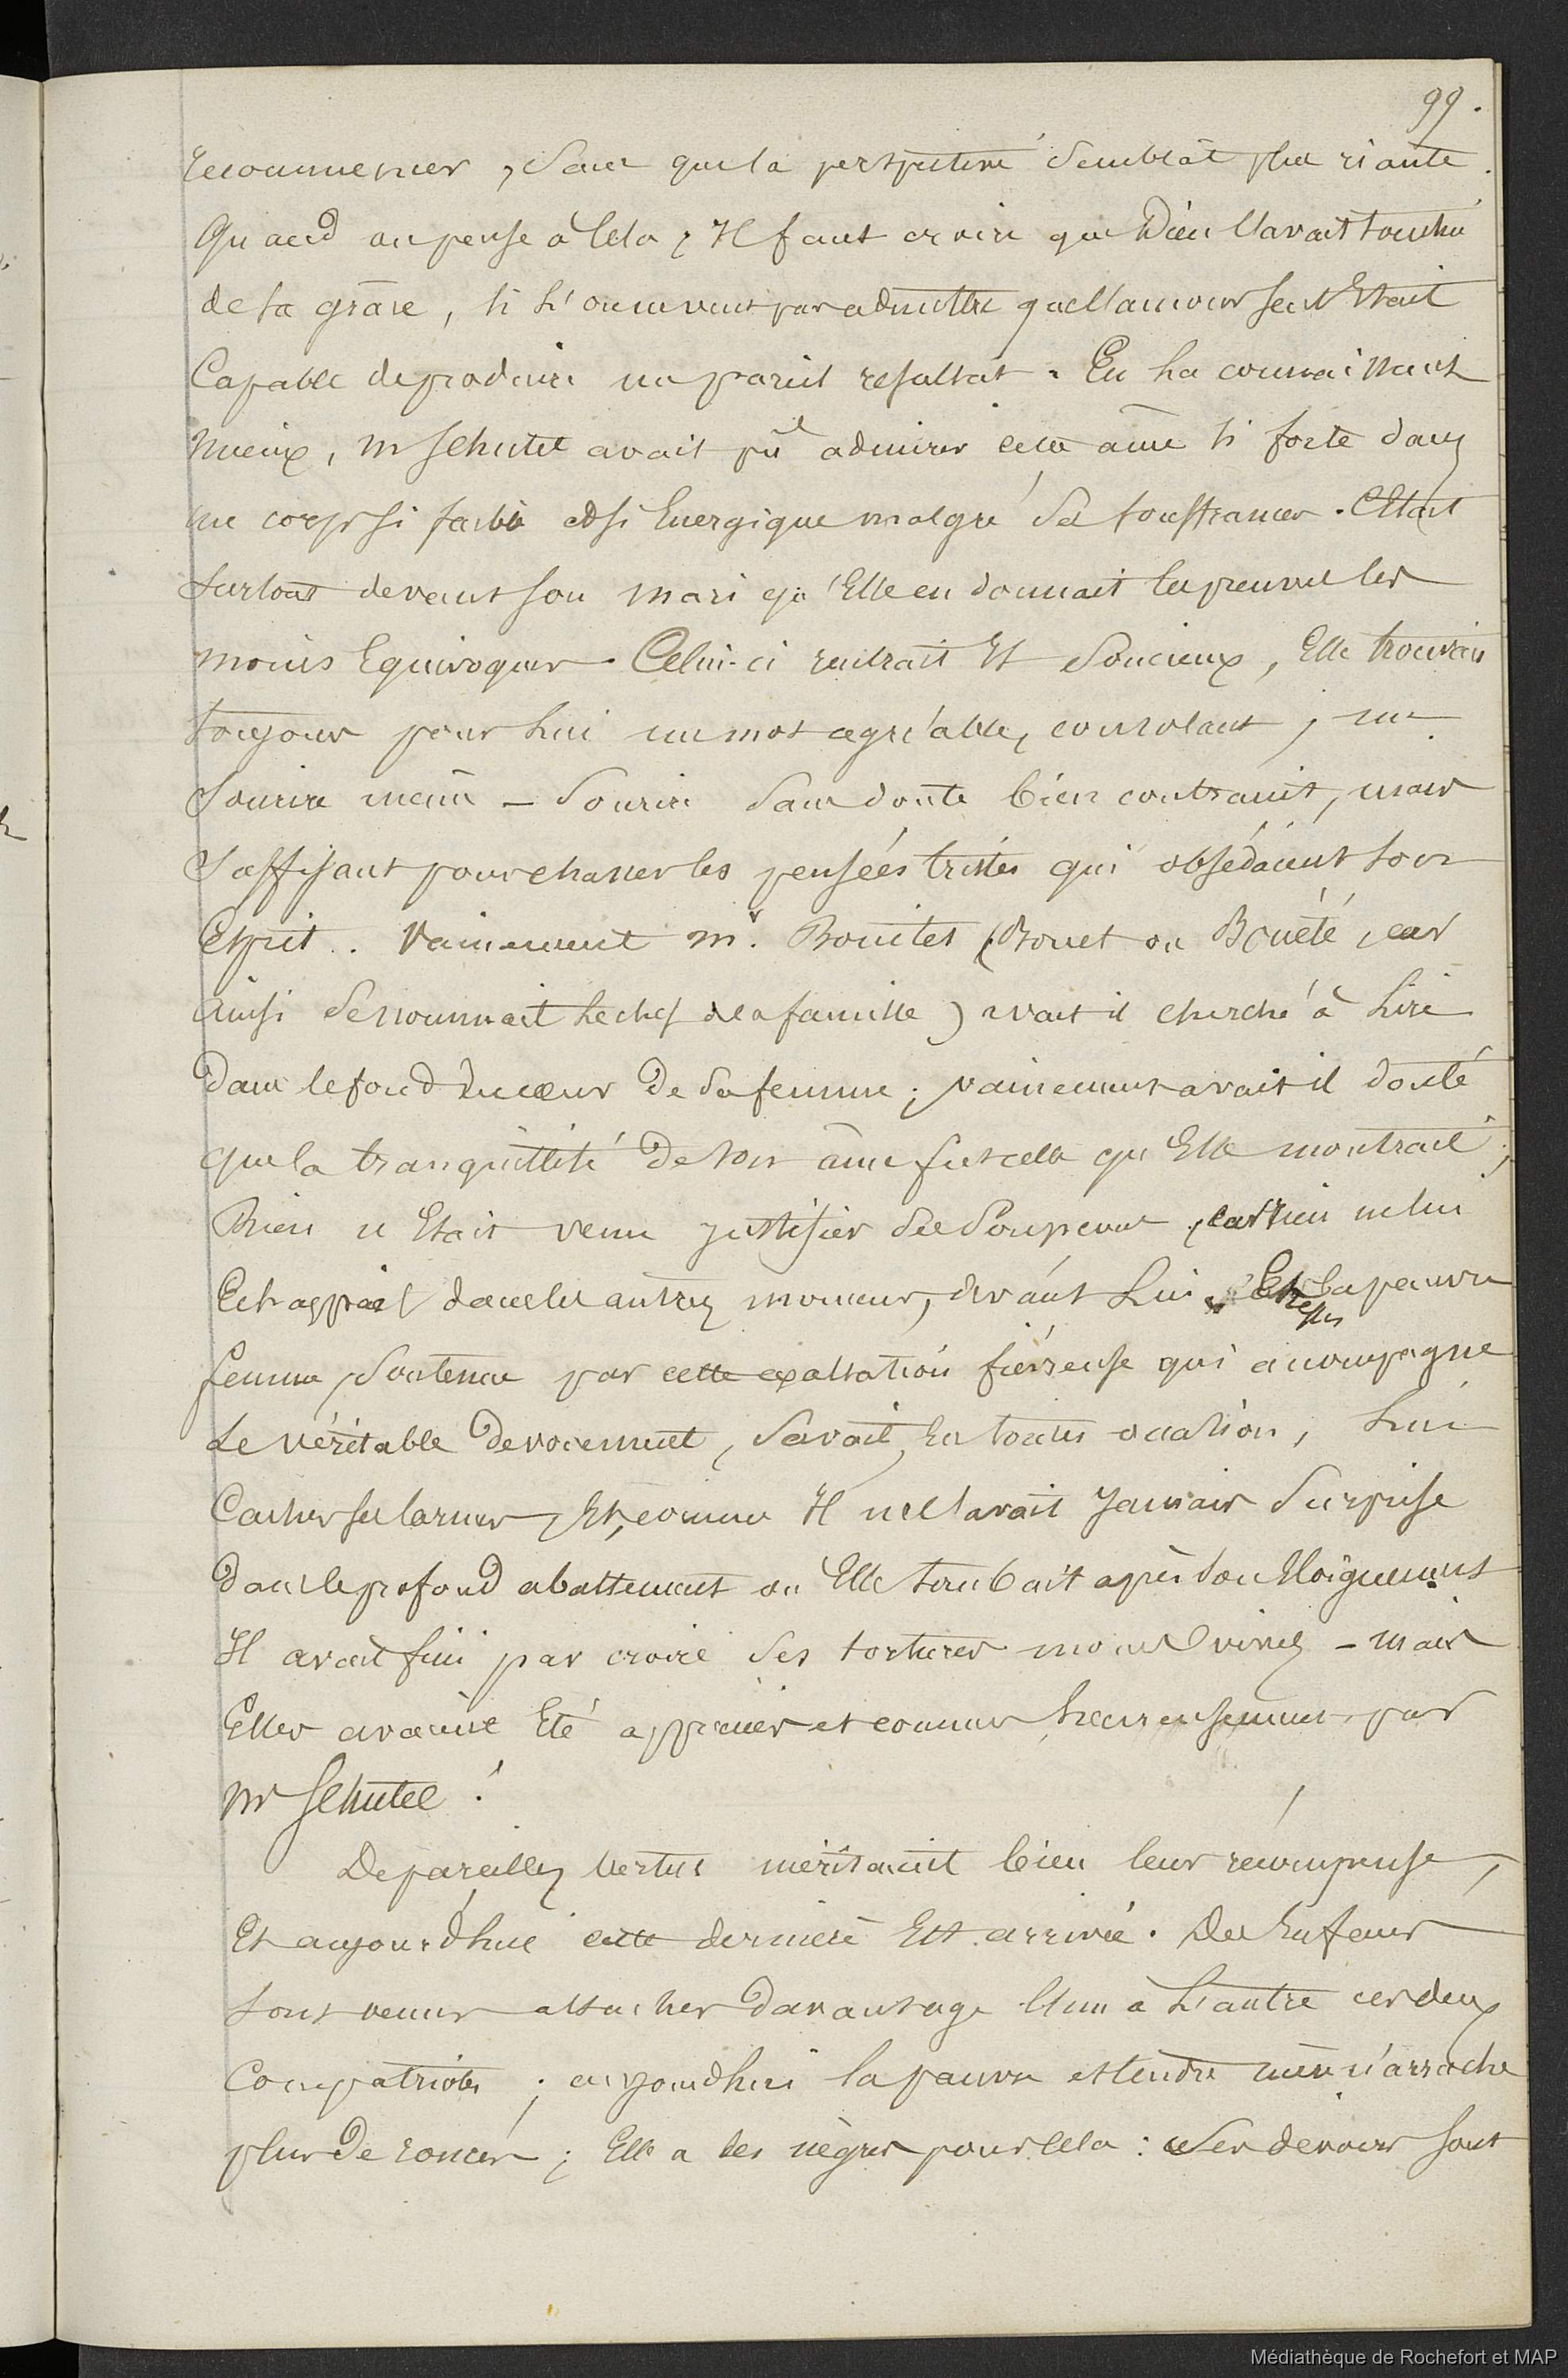 99.
recommencer, sans que la perspective semblât plus riante.
Quand on pense à cela, Il faut croire que Dieu l'avait touchée
de sa grâce, si l'on ne veut pas admettre que l'amour seul Etait
Capable de produire un pareil resultat. En la connaissant
Mieux, Mr Schutel avait pû admirer cette âme si forte dans
un corps si faible et si Energique malgré ses souffrances. C'Etait
surtout devant son mari qu'Elle en donnait les preuves les
moins Equivoques. Celui-ci rentrait Et soucieux, Elle trouvait
toujours pour lui un mot agréable, consolant, un
Sourire même - Sourire sans doute bien contraint, mais
Suffisant pour chasser les pensées tristes qui obsédaient son
Esprit.. Vainement Mr. Bouites (Bouet ou Bouété, car
ainsi se nommait le chef de la famille) avait il cherché à lire
Dans le fond du cœur De sa femme; vainement avait il douté
que la tranquillité De son âme fut celle qu'Elle montrait;
Rien n'Etait venu justifier ses soupçons, car rien ne lui
Echappait dans les autres moments, devant Lui. La pauvre
femme, Soutenue par cette exaltation fiévreuse qui accompagne
Le véritable dévouement, Savait, En toutes occasion, lui
Cacher ses larmes, Et, comme Il ne l'avait jamais Surprise
Dans le profond abattement ou Elle tombait après son Eloignement
Il avait fini par croire ses tortures moins vives - mais
Elles avaient Eté appréciées et connues heureusement par
Mr Schutel!
De pareilles vertus méritaient bien leur récompense,
Et aujourd'hui cette dernière Est arrivée. Des Enfans
sont venus attacher Davantage l'un à l'autre ces deux
Compatriotes; aujourd'hui la pauvre et tendre mère n'arrache
plus De ronces; Elle a des nègres pour cela: Ses devoirs sont
Médiathèque de Rochefort et MAP